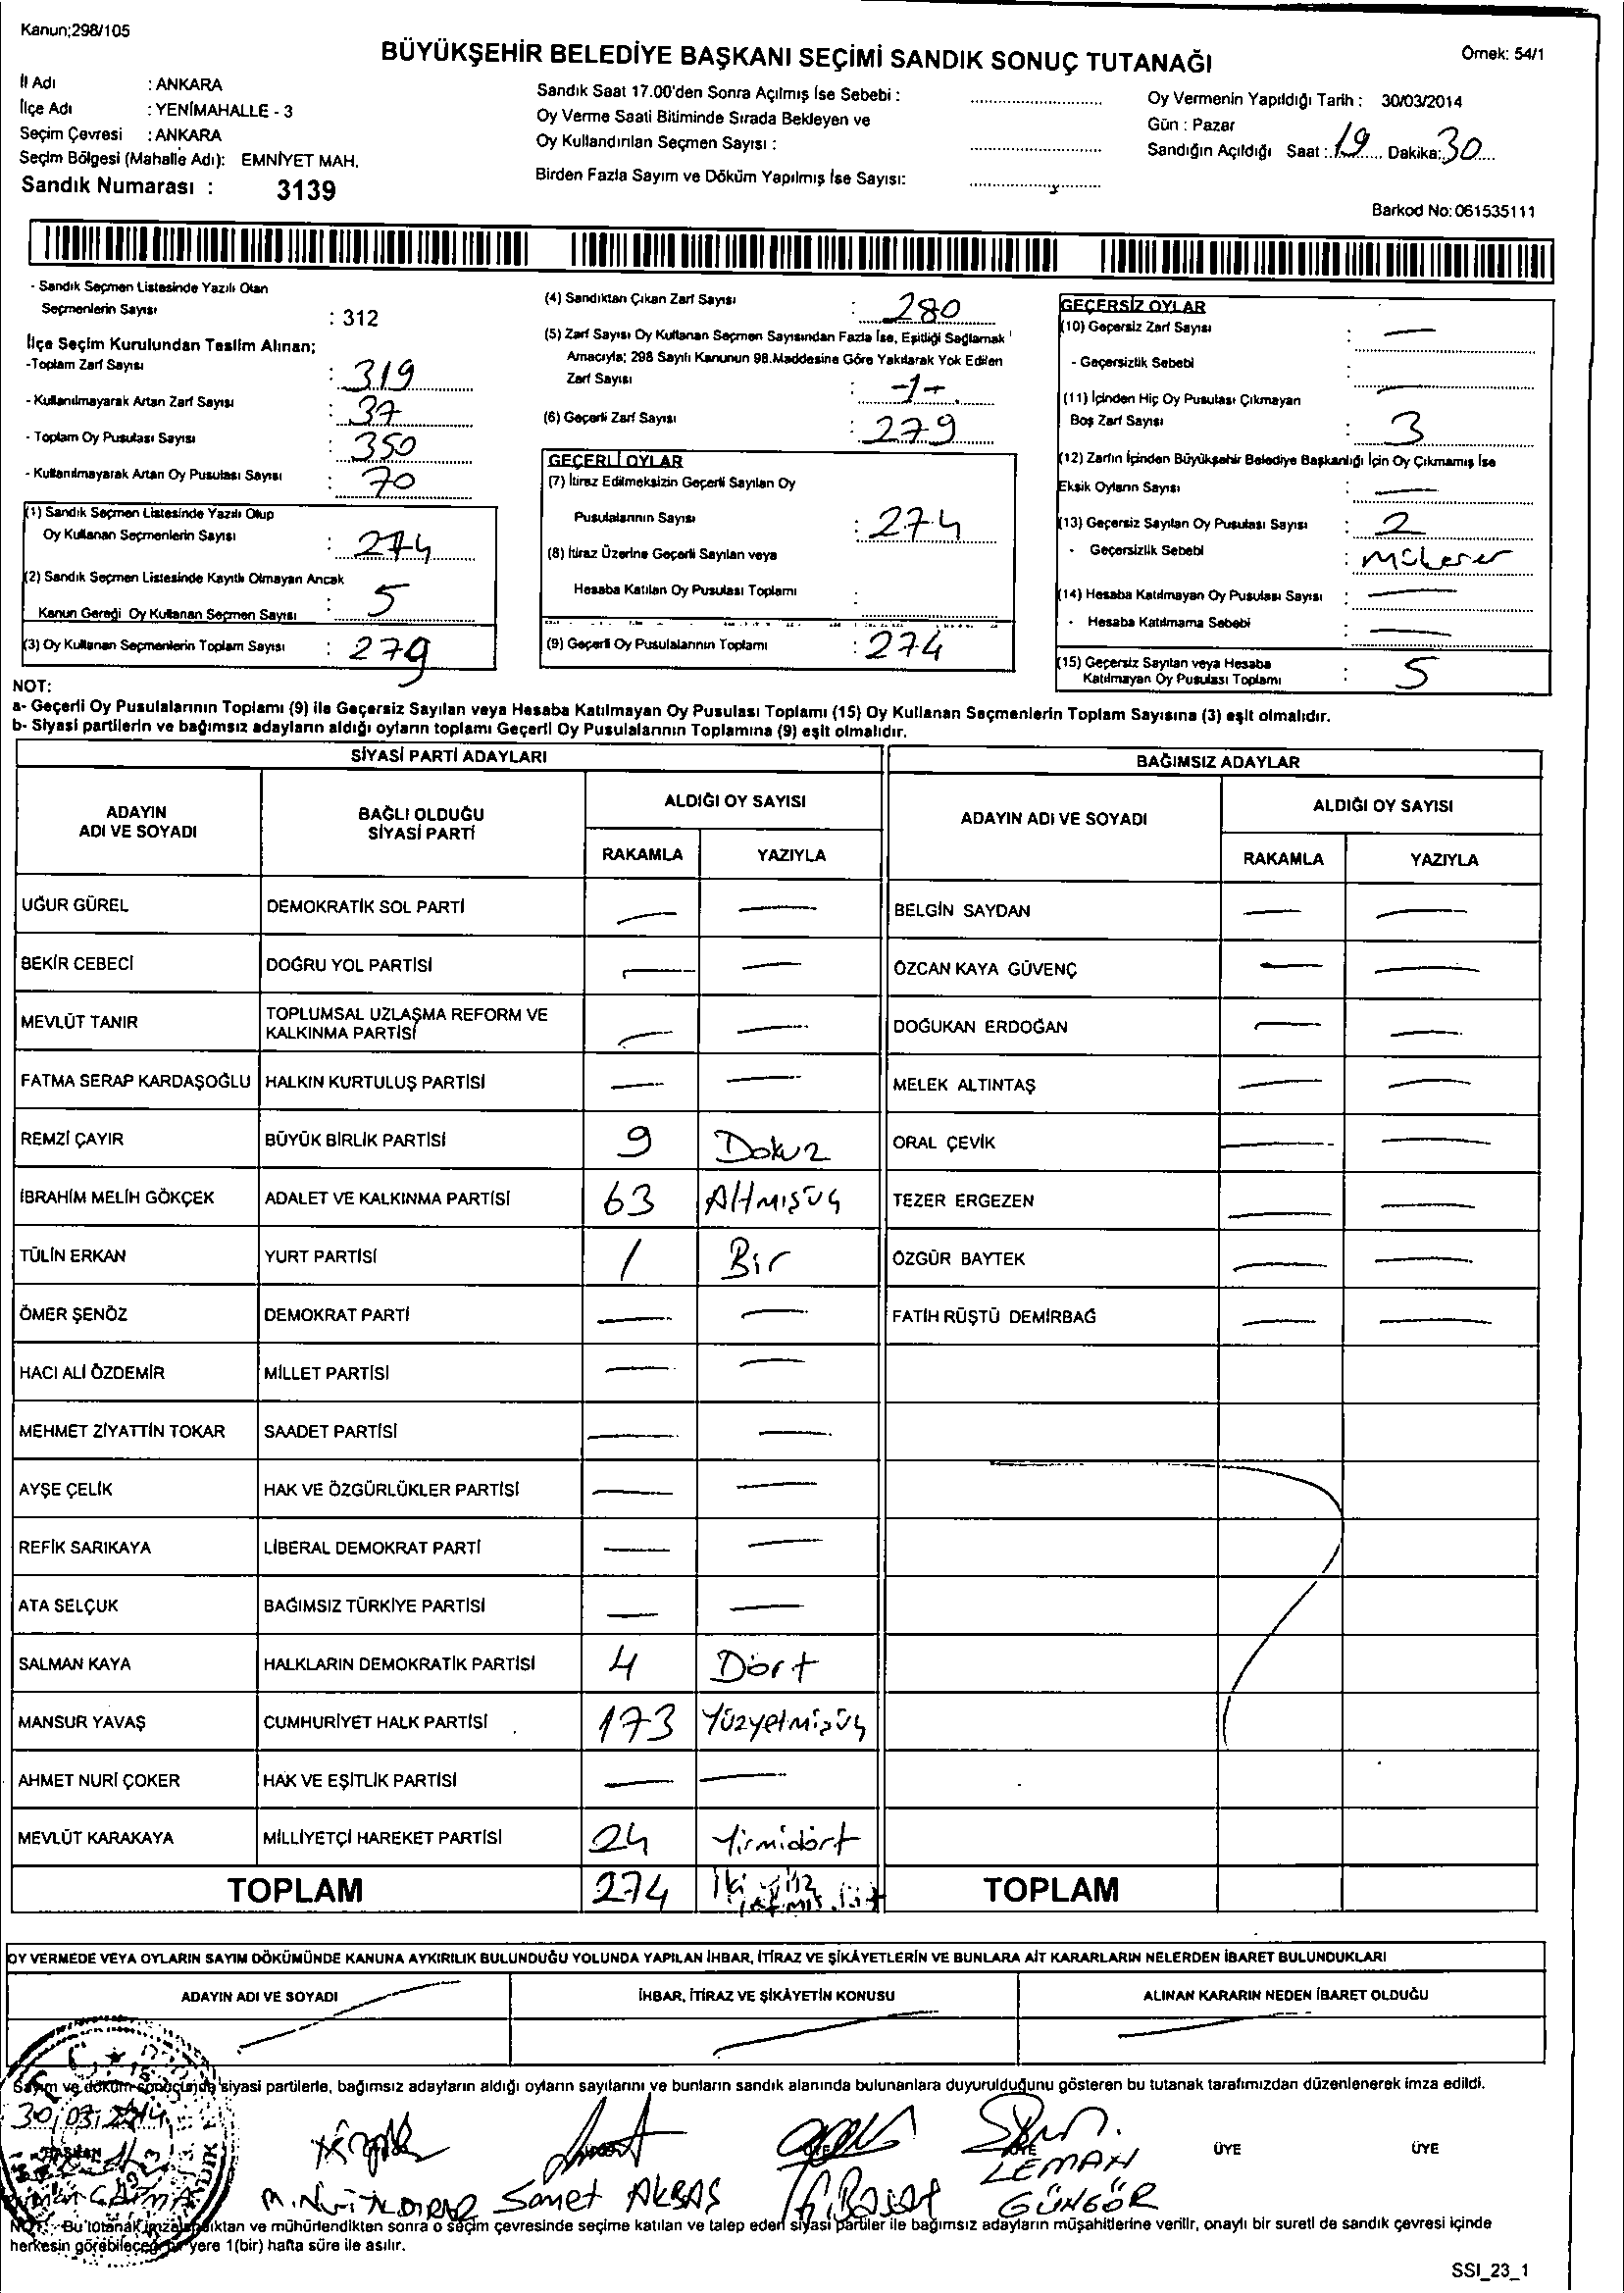 Kanun;298/105
BÜYÜKŞEHİR BELEDİYE BAŞKANI SEÇİMİ SANDIK SONUÇ TUTANAĞI
Örnek: 54/1
İl Adı : ANKARA
İlçe Adı : YENİMAHALLE - 3
Seçim Çevresi : ANKARA
Seçim Bölgesi (Mahalle Adı): EMNİYET MAH.
Sandık Numarası : 3139
Sandık Saat 17.00'den Sonra Açılmış İse Sebebi :
Oy Verme Saati Bitiminde Sırada Bekleyen ve
Oy Kullandırılan Seçmen Sayısı :
Birden Fazla Sayım ve Döküm Yapılmış İse Sayısı:
Oy Vermenin Yapıldığı Tarih : 30/03/2014
Gün : Pazar
Sandığın Açıldığı Saat : 19 Dakika: 30
Barkod No: 061535111
- Sandık Seçmen Listesinde Yazılı Olan
Seçmenlerin Sayısı : 312
İlçe Seçim Kurulundan Teslim Alınan;
-Toplam Zarf Sayısı : 319
- Kullanılmayarak Artan Zarf Sayısı : 37
- Toplam Oy Pusulası Sayısı : 350
- Kullanılmayarak Artan Oy Pusulası Sayısı : 70
(1) Sandık Seçmen Listesinde Yazılı Olup
Oy Kullanan Seçmenlerin Sayısı : 274
(2) Sandık Seçmen Listesinde Kayıtlı Olmayan Ancak
Kanun Gereği Oy Kullanan Seçmen Sayısı : 5
(3) Oy Kullanan Seçmenlerin Toplam Sayısı : 279
(4) Sandıktan Çıkan Zarf Sayısı : 280
(5) Zarf Sayısı Oy Kullanan Seçmen Sayısından Fazla İse, Eşitliği Sağlamak
Amacıyla; 298 Sayılı Kanunun 98.Maddesine Göre Yakılarak Yok Edilen
Zarf Sayısı : -1-
(6) Geçerli Zarf Sayısı : 279
GEÇERLİ OYLAR
(7) İtiraz Edilmeksizin Geçerli Sayılan Oy
Pusulalarının Sayısı : 274
(8) İtiraz Üzerine Geçerli Sayılan veya
Hesaba Katılan Oy Pusulası Toplamı :
(9) Geçerli Oy Pusulalarının Toplamı : 274
GEÇERSİZ OYLAR
(10) Geçersiz Zarf Sayısı : —
- Geçersizlik Sebebi : —
(11) İçinden Hiç Oy Pusulası Çıkmayan
Boş Zarf Sayısı : 3
(12) Zarfın İçinden Büyükşehir Belediye Başkanlığı İçin Oy Çıkmamış İse
Eksik Oyların Sayısı : —
(13) Geçersiz Sayılan Oy Pusulası Sayısı : 2
- Geçersizlik Sebebi :
(14) Hesaba Katılmayan Oy Pusulası Sayısı : —
- Hesaba Katılmama Sebebi : —
(15) Geçersiz Sayılan veya Hesaba
Katılmayan Oy Pusulası Toplamı : 5
NOT:
a- Geçerli Oy Pusulalarının Toplamı (9) ile Geçersiz Sayılan veya Hesaba Katılmayan Oy Pusulası Toplamı (15) Oy Kullanan Seçmenlerin Toplam Sayısına (3) eşit olmalıdır.
b- Siyasi partilerin ve bağımsız adayların aldığı oyların toplamı Geçerli Oy Pusulalarının Toplamına (9) eşit olmalıdır.
SİYASİ PARTİ ADAYLARI
BAĞIMSIZ ADAYLAR
ADAYIN ADI VE SOYADI
BAĞLI OLDUĞU SİYASİ PARTİ
ALDIĞI OY SAYISI
RAKAMLA YAZIYLA
ADAYIN ADI VE SOYADI
ALDIĞI OY SAYISI
RAKAMLA YAZIYLA
UĞUR GÜREL DEMOKRATİK SOL PARTİ — — BELGİN SAYDAN — —
BEKİR CEBECİ DOĞRU YOL PARTİSİ — — ÖZCAN KAYA GÜVENÇ — —
MEVLÜT TANIR TOPLUMSAL UZLAŞMA REFORM VE KALKINMA PARTİSİ — — DOĞUKAN ERDOĞAN — —
FATMA SERAP KARDAŞOĞLU HALKIN KURTULUŞ PARTİSİ — — MELEK ALTINTAŞ — —
REMZİ ÇAYIR BÜYÜK BİRLİK PARTİSİ 9 Dokuz ORAL ÇEVİK — —
İBRAHİM MELİH GÖKÇEK ADALET VE KALKINMA PARTİSİ 63 Altmışüç TEZER ERGEZEN — —
TÜLİN ERKAN YURT PARTİSİ 1 Bir ÖZGÜR BAYTEK — —
ÖMER ŞENÖZ DEMOKRAT PARTİ — — FATİH RÜŞTÜ DEMİRBAĞ — —
HACI ALİ ÖZDEMİR MİLLET PARTİSİ — —
MEHMET ZİYATTİN TOKAR SAADET PARTİSİ — —
AYŞE ÇELİK HAK VE ÖZGÜRLÜKLER PARTİSİ — —
REFİK SARIKAYA LİBERAL DEMOKRAT PARTİ — —
ATA SELÇUK BAĞIMSIZ TÜRKİYE PARTİSİ — —
SALMAN KAYA HALKLARIN DEMOKRATİK PARTİSİ 4 Dört
MANSUR YAVAŞ CUMHURİYET HALK PARTİSİ 173 Yüzyetmişüç
AHMET NURİ ÇOKER HAK VE EŞİTLİK PARTİSİ — —
MEVLÜT KARAKAYA MİLLİYETÇİ HAREKET PARTİSİ 24 Yirmidört
TOPLAM 274 İki yüz TOPLAM
OY VERMEDE VEYA OYLARIN SAYIM DÖKÜMÜNDE KANUNA AYKIRILIK BULUNDUĞU YOLUNDA YAPILAN İHBAR, İTİRAZ VE ŞİKÂYETLERİN VE BUNLARA AİT KARARLARIN NELERDEN İBARET BULUNDUKLARI
ADAYIN ADI VE SOYADI İHBAR, İTİRAZ VE ŞİKÂYETİN KONUSU ALINAN KARARIN NEDEN İBARET OLDUĞU
Sayım ve döküm sonucunda siyasi partilerle, bağımsız adayların aldığı oyların sayılarını ve bunların sandık alanında bulunanlara duyurulduğunu gösteren bu tutanak tarafımızdan düzenlenerek imza edildi.
30/03/2014
BAŞKAN ÜYE ÜYE ÜYE
Samet AKBAŞ
LEMAN
GÜNGÖR
NOT: Bu tutanak imzalandıktan ve mühürlendikten sonra o seçim çevresinde seçime katılan ve talep eden siyasi partiler ile bağımsız adayların müşahitlerine verilir, onaylı bir sureti de sandık çevresi içinde
herkesin görebileceği bir yere 1(bir) hafta süre ile asılır.
SSI_23_1